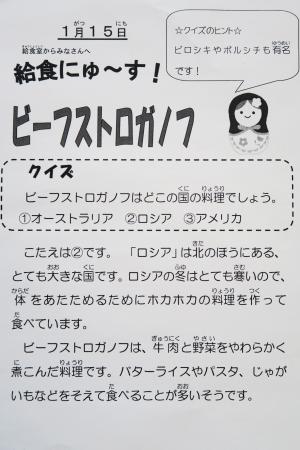 1月15日
☆クイズのヒント☆
ピロシキやボルシチも有名
です！
給食室からみなさんへ
給食にゅ～す！
ビーフストロガノフ
クイズ
ビーフストロガノフはどこの国の料理でしょう。
①オーストラリア ②ロシア ③アメリカ
こたえは②です。「ロシア」は北のほうにある、
とても大きな国です。ロシアの冬はとても寒いので、
体をあたためるためにホカホカの料理を作って
食べています。
ビーフストロガノフは、牛肉と野菜をやわらかく
煮こんだ料理です。バターライスやパスタ、じゃが
いもなどをそえて食べることが多いそうです。